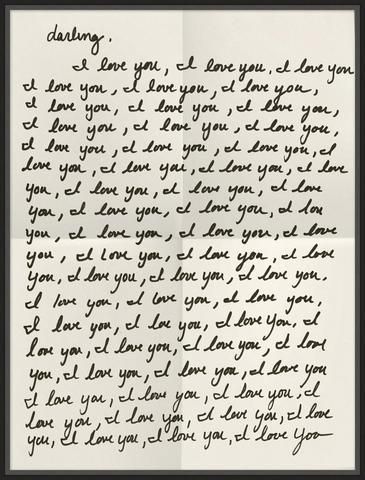 darling.
I love you, I love you, I love you
I love you, I love you, I love you,
I love you, I love you, I love you,
I love you, I love you, I love you,
I love you, I love you, I love you, I
love you, I love you, I love you, I love
you, I love you, I love you, I love
you, I love you, I love you, I love
you, I love you, I love you, I love
you, I love you, I love you, I love
you, I love you, I love you, I love you,
I love you, I love you, I love you,
I love you, I love you, I love you, I
love you, I love you, I love you, I love
you, I love you, I love you, I love you
I love you, I love you, I love you, I
love you, I love you, I love you, I love
you, I love you, I love you, I love you